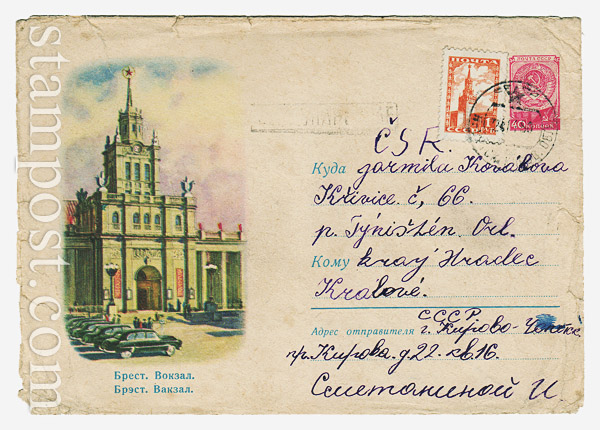 stampost.com
ПОЧТА
1
РУБ.
ПОЧТА СССР
40 КОПЕЕК
ČSR.
Куда Jarmila Kovalova
Křivice. č, 66.
p. Týništěn. Orl.
Кому kraý Hradec
Kralové.
СССР
Адрес отправителя г. Кирово-Чепецк
пр. Кирова. д 22. кв. 16.
Сметаниной И.
Брест. Вокзал.
Брэст. Вакзал.